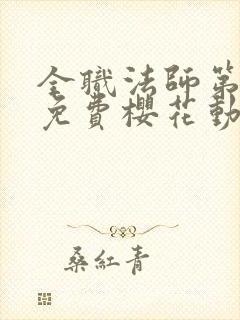 全職法師第
免費櫻花動
桑紅青